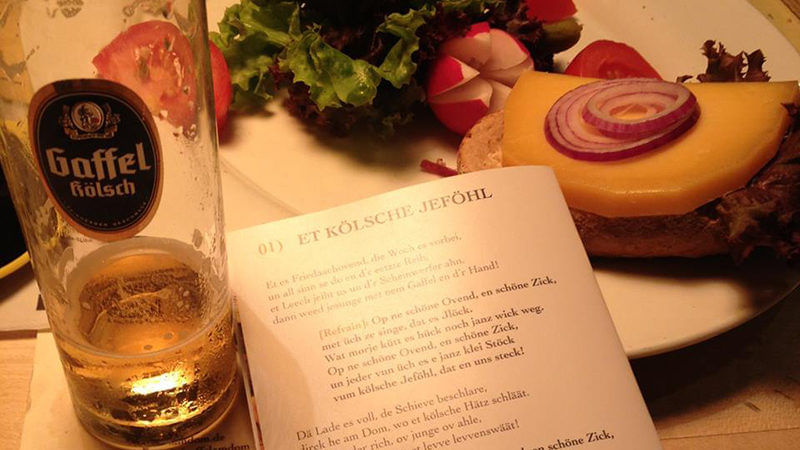 Gaffel
Kölsch
01) ET KÖLSCHE JEFÖHL
Et es Friedaachovend, die Woch es vorbei,
un all sinn se do en d'r eetzte Reih,
et Leech jeiht us un d'r Scheinwerfer ahn,
dann weed jesunge met nem Gaffel en d'r Hand!
[Refrain]: Op ne schöne Ovend, en schöne Zick,
met üch ze singe, dat es Jlöck,
Wat morje kütt es hück noch janz wick weg.
Op ne schöne Ovend, en schöne Zick,
un jeder vun üch es e janz klei Stöck
vum kölsche Jeföhl, dat en uns steck!
Dä Lade es voll, de Schieve beschlare,
direk he am Dom, wo et kölsche Hätz schläät.
rich, ov junge ov ahle,
levve levvenswäät!
en schöne Zick,